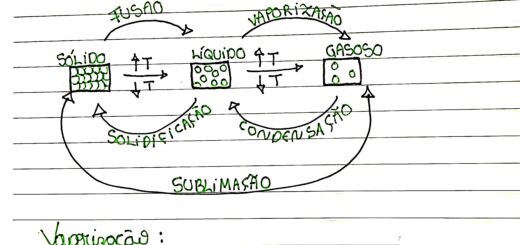 FUSÃO VAPORIZAÇÃO
SÓLIDO LÍQUIDO GASOSO
↑T ↑T
↓T ↓T
SOLIDIFICAÇÃO CONDENSAÇÃO
SUBLIMAÇÃO
Vaporização: